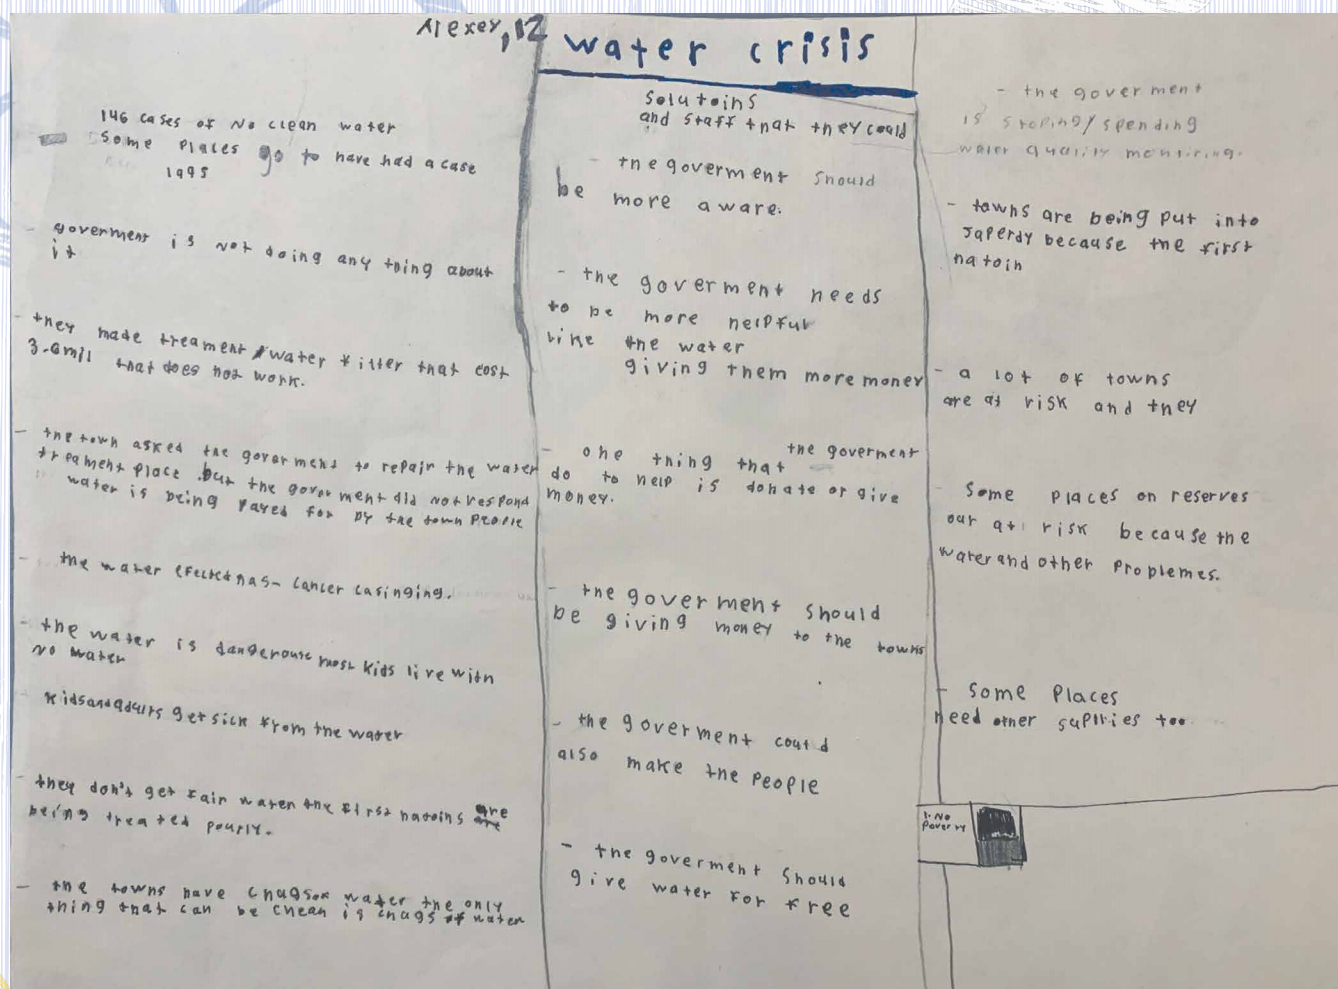 Alexey, 12
water crisis
146 cases of No clean water
Some Places go to have had a case
1995
- goverment is not doing any thing about
it
- they made treament / water filter that cost
3.6mil that does not work.
- the town asked the goverment to repair the water
treament place but the goverment did not respond
water is being payed for by the town People
- the water efected has - cancer casinging.
- the water is dangerouse most kids live with
no water
kids and adults get sick from the water
- they don't get fair water the first natoins are
being treated pourly.
- the towns have of water the only
thing that can be is of water
Solutoins
and staff that they could
- the goverment should
be more aware.
- the goverment needs
to be more helpful
like the water
giving them more money
- one thing that the goverment
do to help is donate or give
money.
- the goverment should
be giving money to the towns
- the goverment could
also make the people
- the goverment should
give water for free
- the goverment
is stoping/spending
water quality montiring.
- towns are being put into
Japerdy because the first
natoin
- a lot of towns
are at risk and they
- Some places on reserves
our at risk because the
water and other Proplemes.
- Some Places
need other suplies too
1. No
Poverty